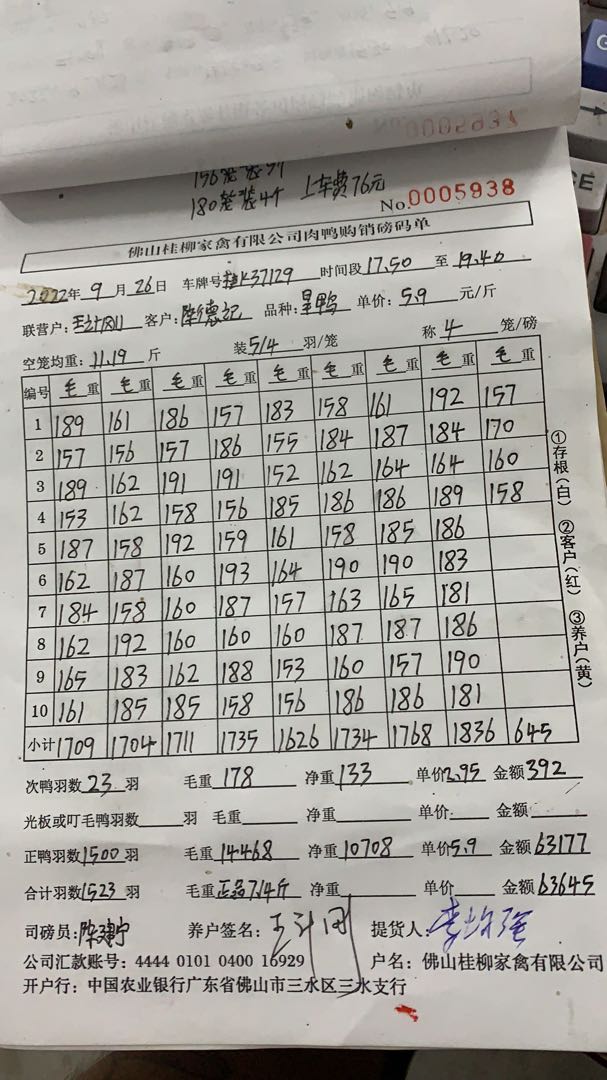 156笼装5个
180笼装4个 上车费76元
No.0005938
佛山桂柳家禽有限公司肉鸭购销磅码单
2022年 9 月 26 日 车牌号 桂K37129 时间段 17.50 至 19.40
联营户: 王计刚 客户: 陈德记 品种: 旱鸭 单价: 5.9 元/斤
空笼均重: 11.19 斤 装 5/4 羽/笼 称 4 笼/磅
编号 毛重 毛重 毛重 毛重 毛重 毛重 毛重 毛重 毛重
1 189 161 186 157 183 158 161 192 157
2 157 156 157 186 155 184 187 184 170
3 189 162 191 191 152 162 164 164 160
4 153 162 158 156 185 186 186 189 158
5 187 158 192 159 161 158 185 186
6 162 187 160 193 164 190 190 183
7 184 158 160 187 157 163 165 181
8 162 192 160 160 160 187 187 186
9 165 183 162 188 153 160 157 190
10 161 185 185 158 156 186 186 181
小计 1709 1704 1711 1735 1626 1734 1768 1836 645
①存根(白) ②客户(红) ③养户(黄)
次鸭羽数 23 羽 毛重 178 净重 133 单价 2.95 金额 392
光板或叮毛鸭羽数 羽 毛重 净重 单价 金额
正鸭羽数 1500 羽 毛重 14468 净重 10708 单价 5.9 金额 63177
合计羽数 1523 羽 毛重 正品7.14斤 净重 单价 金额 63645
司磅员: 陈建宁 养户签名: 王计刚 提货人:
公司汇款账号: 4444 0101 0400 16929 户名: 佛山桂柳家禽有限公司
开户行: 中国农业银行广东省佛山市三水区三水支行